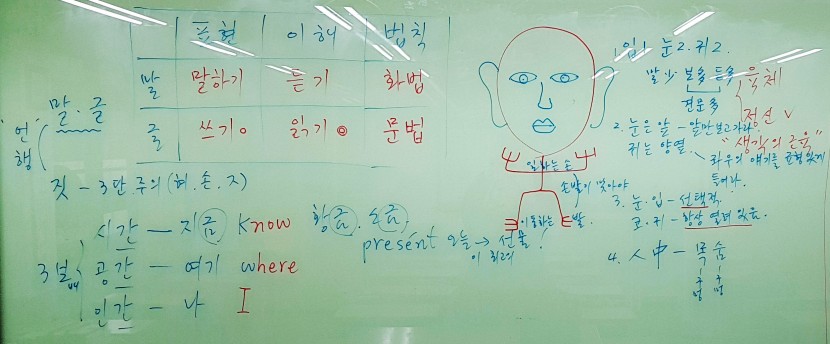 표현 이해 법칙
말 말하기 듣기 화법
글 쓰기 읽기 문법
"언행
말·글
짓 - 3단.주의 (혀.손.지)
3보
시간 - 지금 Know 황금. 소금.
present 오늘 → 선물!
이 최고의
공간 - 여기 where
인간 - 나 I
일하는 손
손발이 맞아야
이동하는 발
1. 입1 눈2. 귀2.
말少 보多 듣多
견문多
육체
정신
2. 눈은 앞 - 앞만보고가라.
귀는 양옆.
"생각의 근육"
좌우의 얘기를 균형있게
들어라.
3. 눈.입 - 선택적
코.귀 - 항상 열려 있음.
4. 人中 - 목숨
구멍 구멍